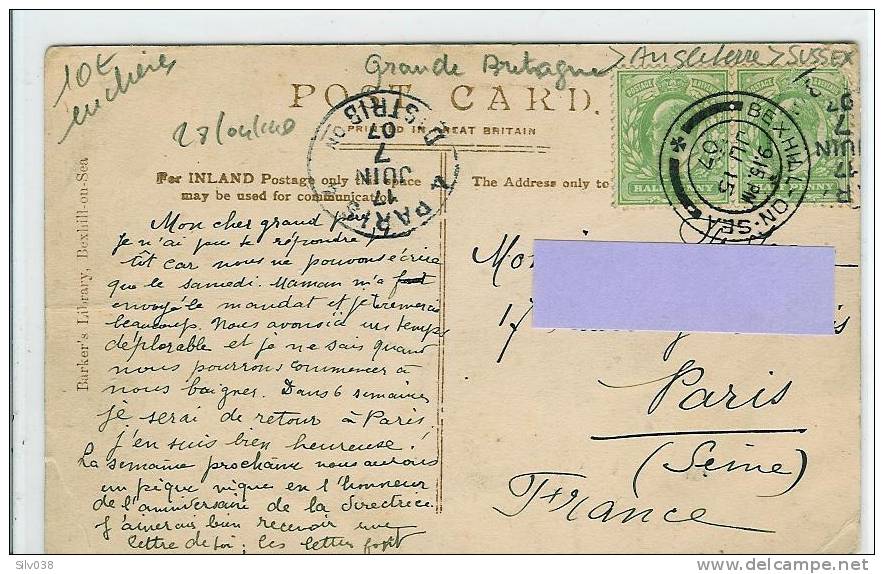 10€
enchères
Grande Bretagne > Angleterre > SUSSEX
POST CARD
PRINTED IN GREAT BRITAIN
For INLAND Postage only this space
may be used for communication.
The Address only to
HALFPENNY
PENNY
BEXHILL-ON-SEA
9.15 PM
JU 15
07
PARIS
17
JUIN
7
07
DISTRIBON
Barker's Library, Bexhill-on-Sea
Mon cher grand père
Je n'ai pu te répondre plus
tôt car nous ne pouvons écrire
que le samedi. Maman m'a
envoyé le mandat et je te remercie
beaucoup. Nous avons ici un temps
déplorable et je ne sais quand
nous pourrons commencer à
nous baigner. Dans 6 semaines
je serai de retour à Paris
j'en suis bien heureuse!
La semaine prochaine nous aurons
un pique nique en l'honneur
de l'anniversaire de la directrice.
J'aimerais bien recevoir une
lettre de toi; les lettres font
17
Paris
(Seine)
France
Slv038
delcampe.net